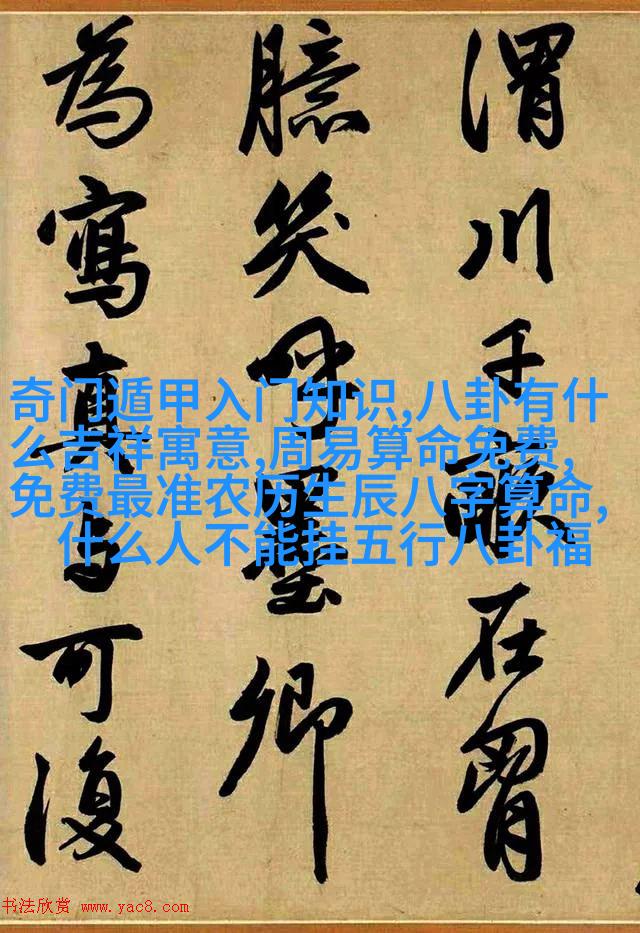 渭川千畝在胷
臆笑呼墨卿
為寫真與可復
奇门遁甲入门知识,八卦有什
么吉祥寓意,周易算命免费,
免费最准农历生辰八字算命,
什么人不能挂五行八卦福
书法欣赏 www.yac8.com